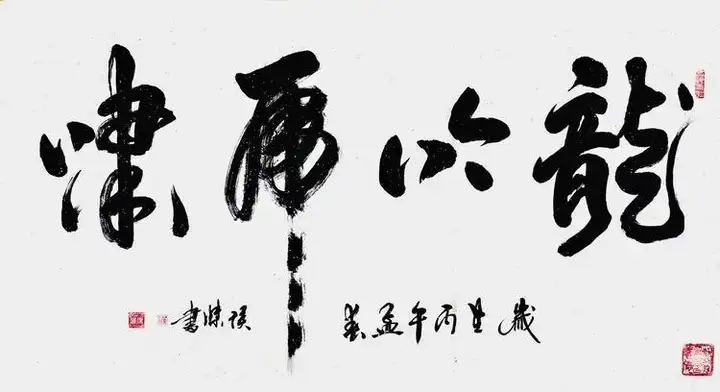 龍吟虎嘯
歲在丙午孟春 侯勝書